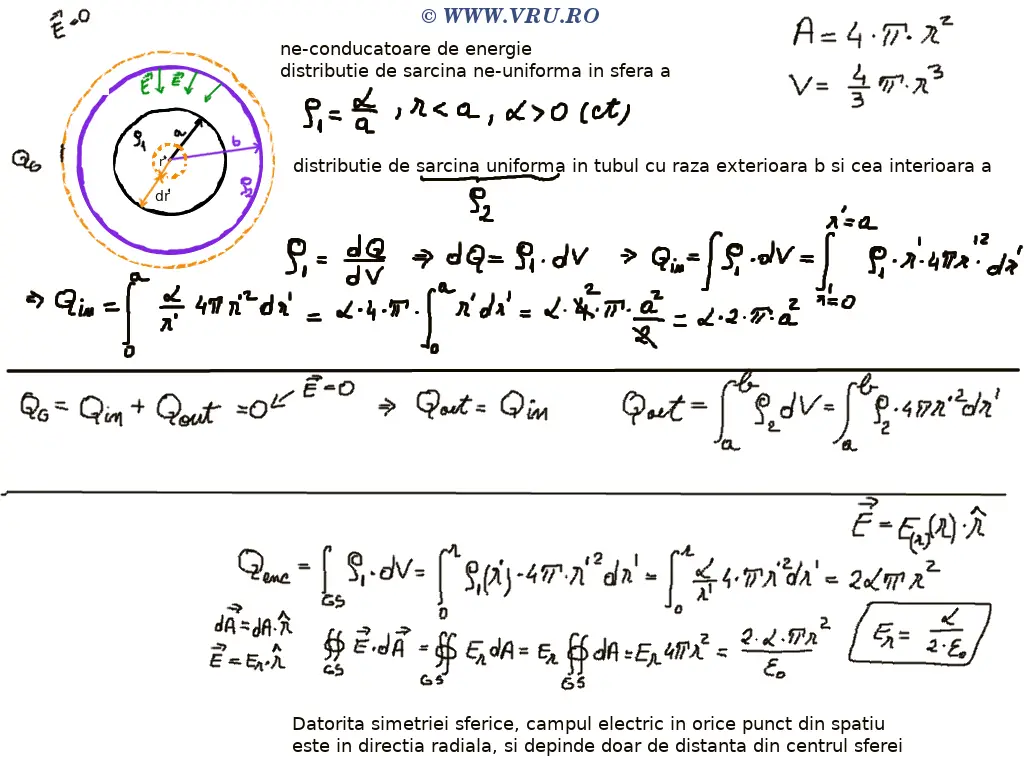 © WWW.VRU.RO
E⃗=0
ne-conducatoare de energie
distributie de sarcina ne-uniforma in sfera a
A = 4·π·r²
V = 4/3 π·r³
ρ₁ = α/a , r < a , α > 0 (ct)
E⃗ E⃗
ρ₁ a b
Q_G r' ρ₂
dr'
distributie de sarcina uniforma in tubul cu raza exterioara b si cea interioara a
ρ₂
ρ₁ = dQ/dV ⇒ dQ = ρ₁·dV ⇒ Q_in = ∫ρ₁·dV = ∫_{r'=0}^{r'=a} ρ₁·r'·4πr'²·dr'
⇒ Q_in = ∫₀^a α/r' 4πr'²dr' = α·4·π·∫₀^a r'dr' = α·4²·π·a²/2 = α·2·π·a²
Q_G = Q_in + Q_out = 0 ↙ E⃗=0 ⇒ Q_out = Q_in Q_out = ∫_a^b ρ₂dV = ∫_a^b ρ₂·4πr'²dr'
E⃗ = E_(r)(r)·r̂
Q_enc = ∫_GS ρ₁·dV = ∫₀^r ρ₁(r')·4π·r'²dr' = ∫₀^r α/r' 4·πr'²dr' = 2απr²
dA⃗ = dA·r̂
E⃗ = E_r·r̂
∯_GS E⃗·dA⃗ = ∯_GS E_r dA = E_r ∯_GS dA = E_r 4πr² = 2·α·πr²/ε₀
E_r = α/2·ε₀
Datorita simetriei sferice, campul electric in orice punct din spatiu
este in directia radiala, si depinde doar de distanta din centrul sferei